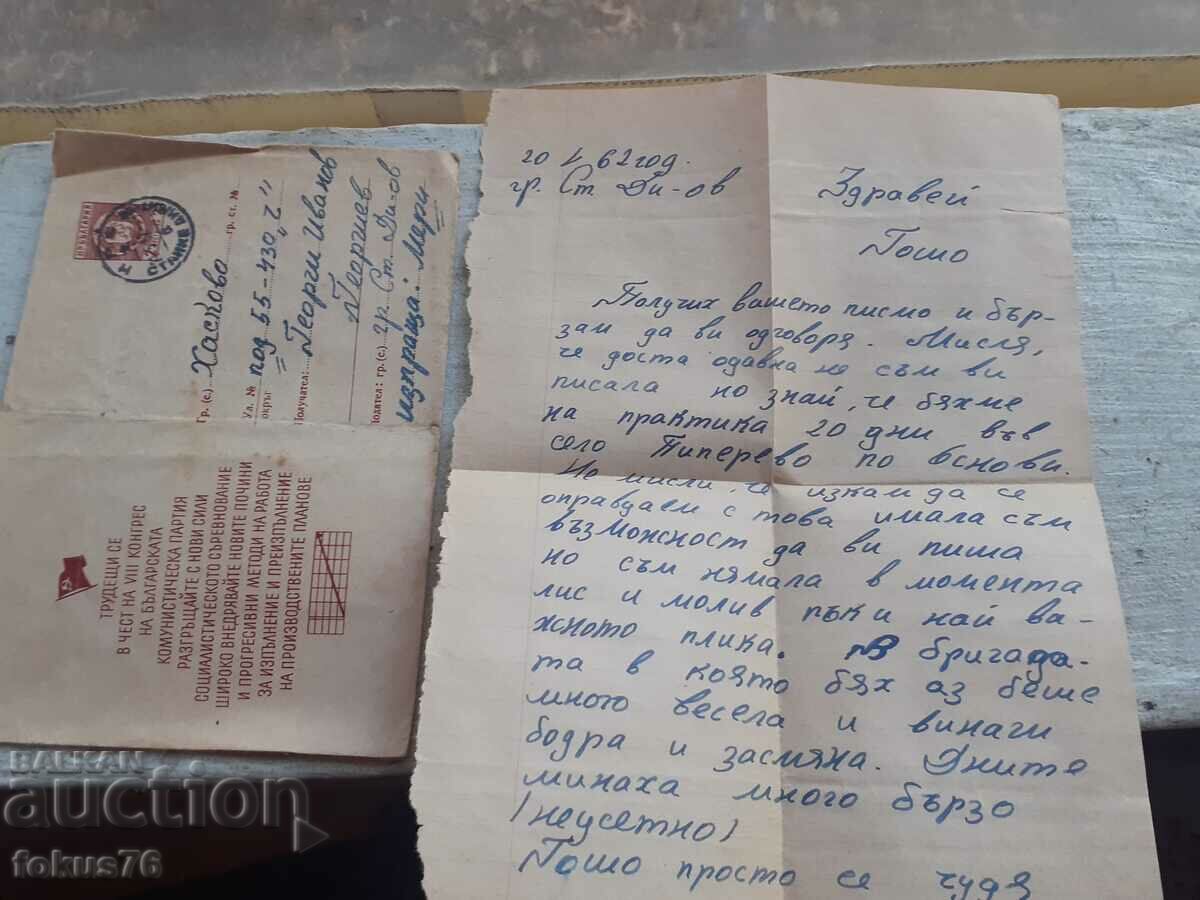 НРБЪЛГАРИЯ
Гр. (с.) Хасково гр. ст. №
Ул. № под 55-430 "Г"
окръг
Получател: Георги Иванов
Георгиев
Подател: гр. (с.) гр. Ст. Ди-ов
изпраща: Мери
ТРУДЕЩИ СЕ
В ЧЕСТ НА VIII КОНГРЕС
НА БЪЛГАРСКАТА
КОМУНИСТИЧЕСКА ПАРТИЯ
РАЗГРЪЩАЙТЕ С НОВИ СИЛИ
СОЦИАЛИСТИЧЕСКОТО СЪРЕВНОВАНИЕ
ШИРОКО ВНЕДРЯВАЙТЕ НОВИТЕ ПОЧИНИ
И ПРОГРЕСИВНИ МЕТОДИ НА РАБОТА
ЗА ИЗПЪЛНЕНИЕ И ПРЕИЗПЪЛНЕНИЕ
НА ПРОИЗВОДСТВЕНИТЕ ПЛАНОВЕ
62 год.
гр. Ст. Ди-ов
Здравей
Гошо
Получих вашето писмо и бър-
зам да ви одговоря. Мисля,
че доста одавна не съм ви
писала но знай, че бяхме
на практика 20 дни във
село Пиперево по основи.
Не мисли, че искам да се
оправдаем с това имала съм
възможност да ви пиша
но съм нямала в момента
лис и молив пък и най ва-
жното плика. В бригада-
та в която бях аз беше
много весела и винаги
бодра и засмяна. Дните
минаха много бързо
/неусетно/
Гошо просто се чудя
BALKAN
auction
fokus76